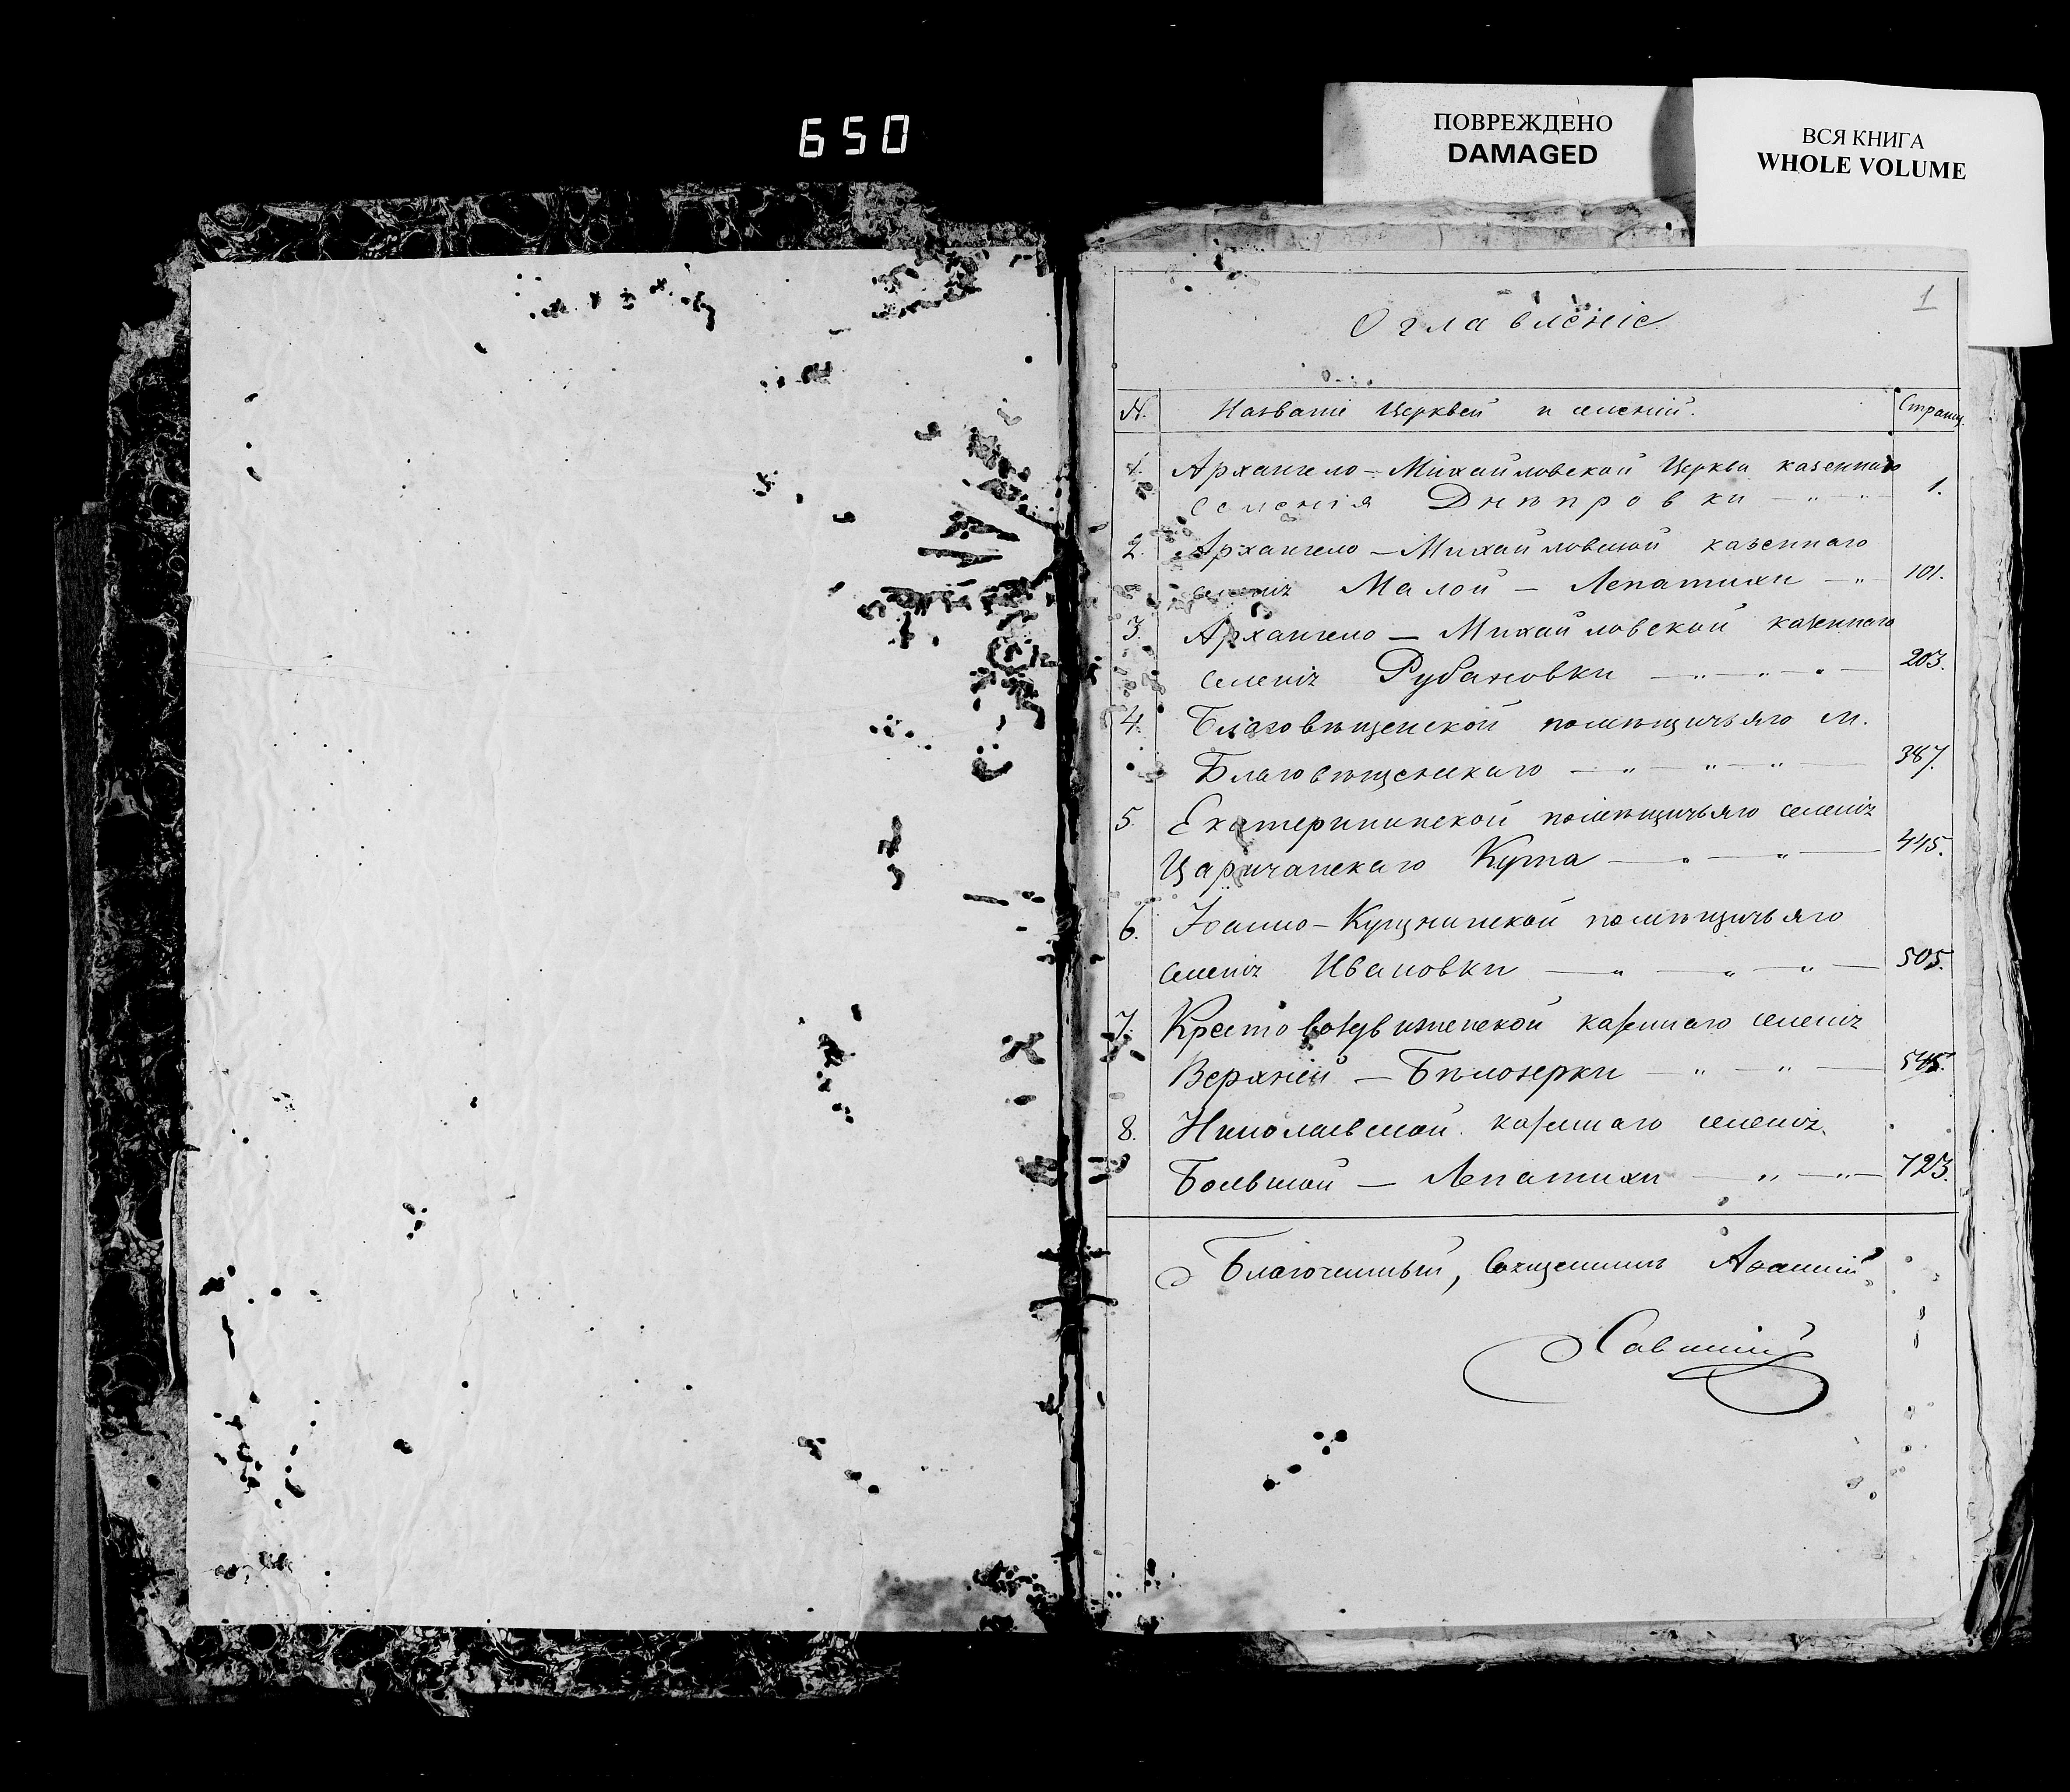 650
ПОВРЕЖДЕНО
DAMAGED
ВСЯ КНИГА
WHOLE VOLUME
1
Оглавленіе
№. Названіе Церквей и селеній. Страниц.
1. Архангело-Михайловской Церкви казеннаго
Селенія Днѣпровки — „ — „ 1.
2. Архангело-Михайловской казеннаго
селенія Малой - Лепатихи — „ — 101.
3. Архангело - Михайловской казеннаго
селенія Рубановки — „ — „ — „ — 203.
4. Благовѣщенской помѣщичьяго м.
Благовѣщенскаго — „ — „ — „ — 387.
5. Екатерининской помѣщичьяго селенія
Царичанскаго Кута — „ — „ — 445.
6. Іоанно-Кущникской помѣщичьяго
селенія Ивановки — „ — „ — „ — 505.
7. Крестовоздвиженской казеннаго селенія
Верхней - Бѣлозерки — „ — „ — 545.
8. Николаевской казеннаго селенія
Большой - Лепатихи — „ — „ — 723.
Благочинный, Священникъ